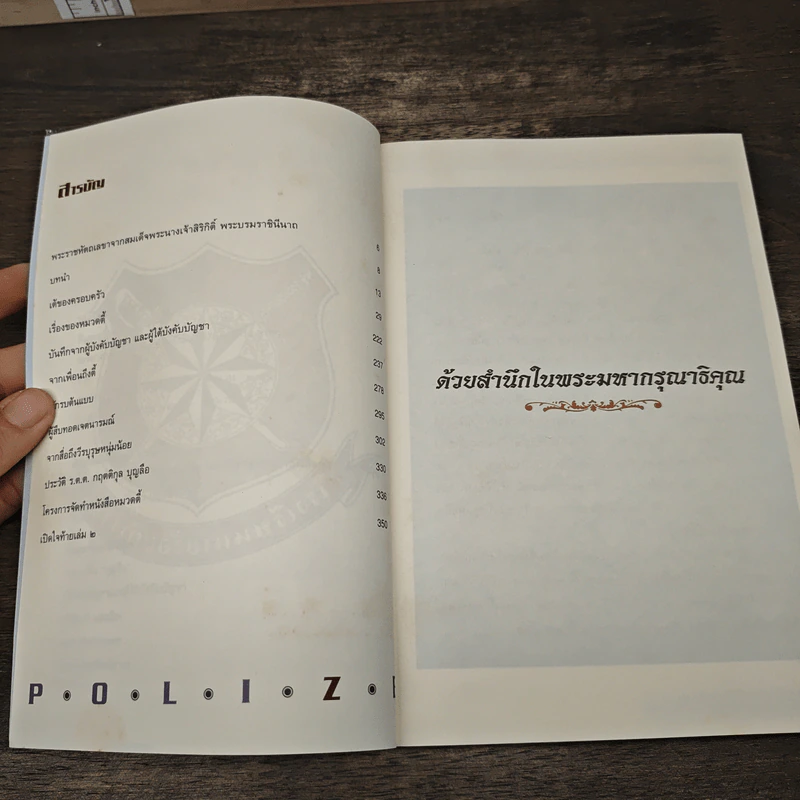 สารบัญ
พระราชหัตถเลขาจากสมเด็จพระนางเจ้าสิริกิติ์ พระบรมราชินีนาถ 6
บทนำ 8
เต้ของครอบครัว 13
เรื่องของหมวดตี้ 29
บันทึกจากผู้บังคับบัญชา และผู้ใต้บังคับบัญชา 222
จากเพื่อนถึงตี้ 237
กรบต้นแบบ 278
ผู้สืบทอดเจตนารมณ์ 295
จากสื่อถึงวีรบุรุษหนุ่มน้อย 302
ประวัติ ร.ต.ต. กฤตติกุล บุญลือ 330
โครงการจัดทำหนังสือหมวดตี้ 336
เปิดใจท้ายเล่ม ๒ 350
P • O • L • I • Z •
ด้วยสำนึกในพระมหากรุณาธิคุณ